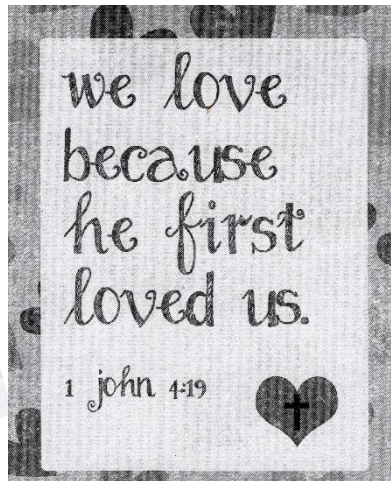 we love
because
he first
loved us.
1 john 4:19